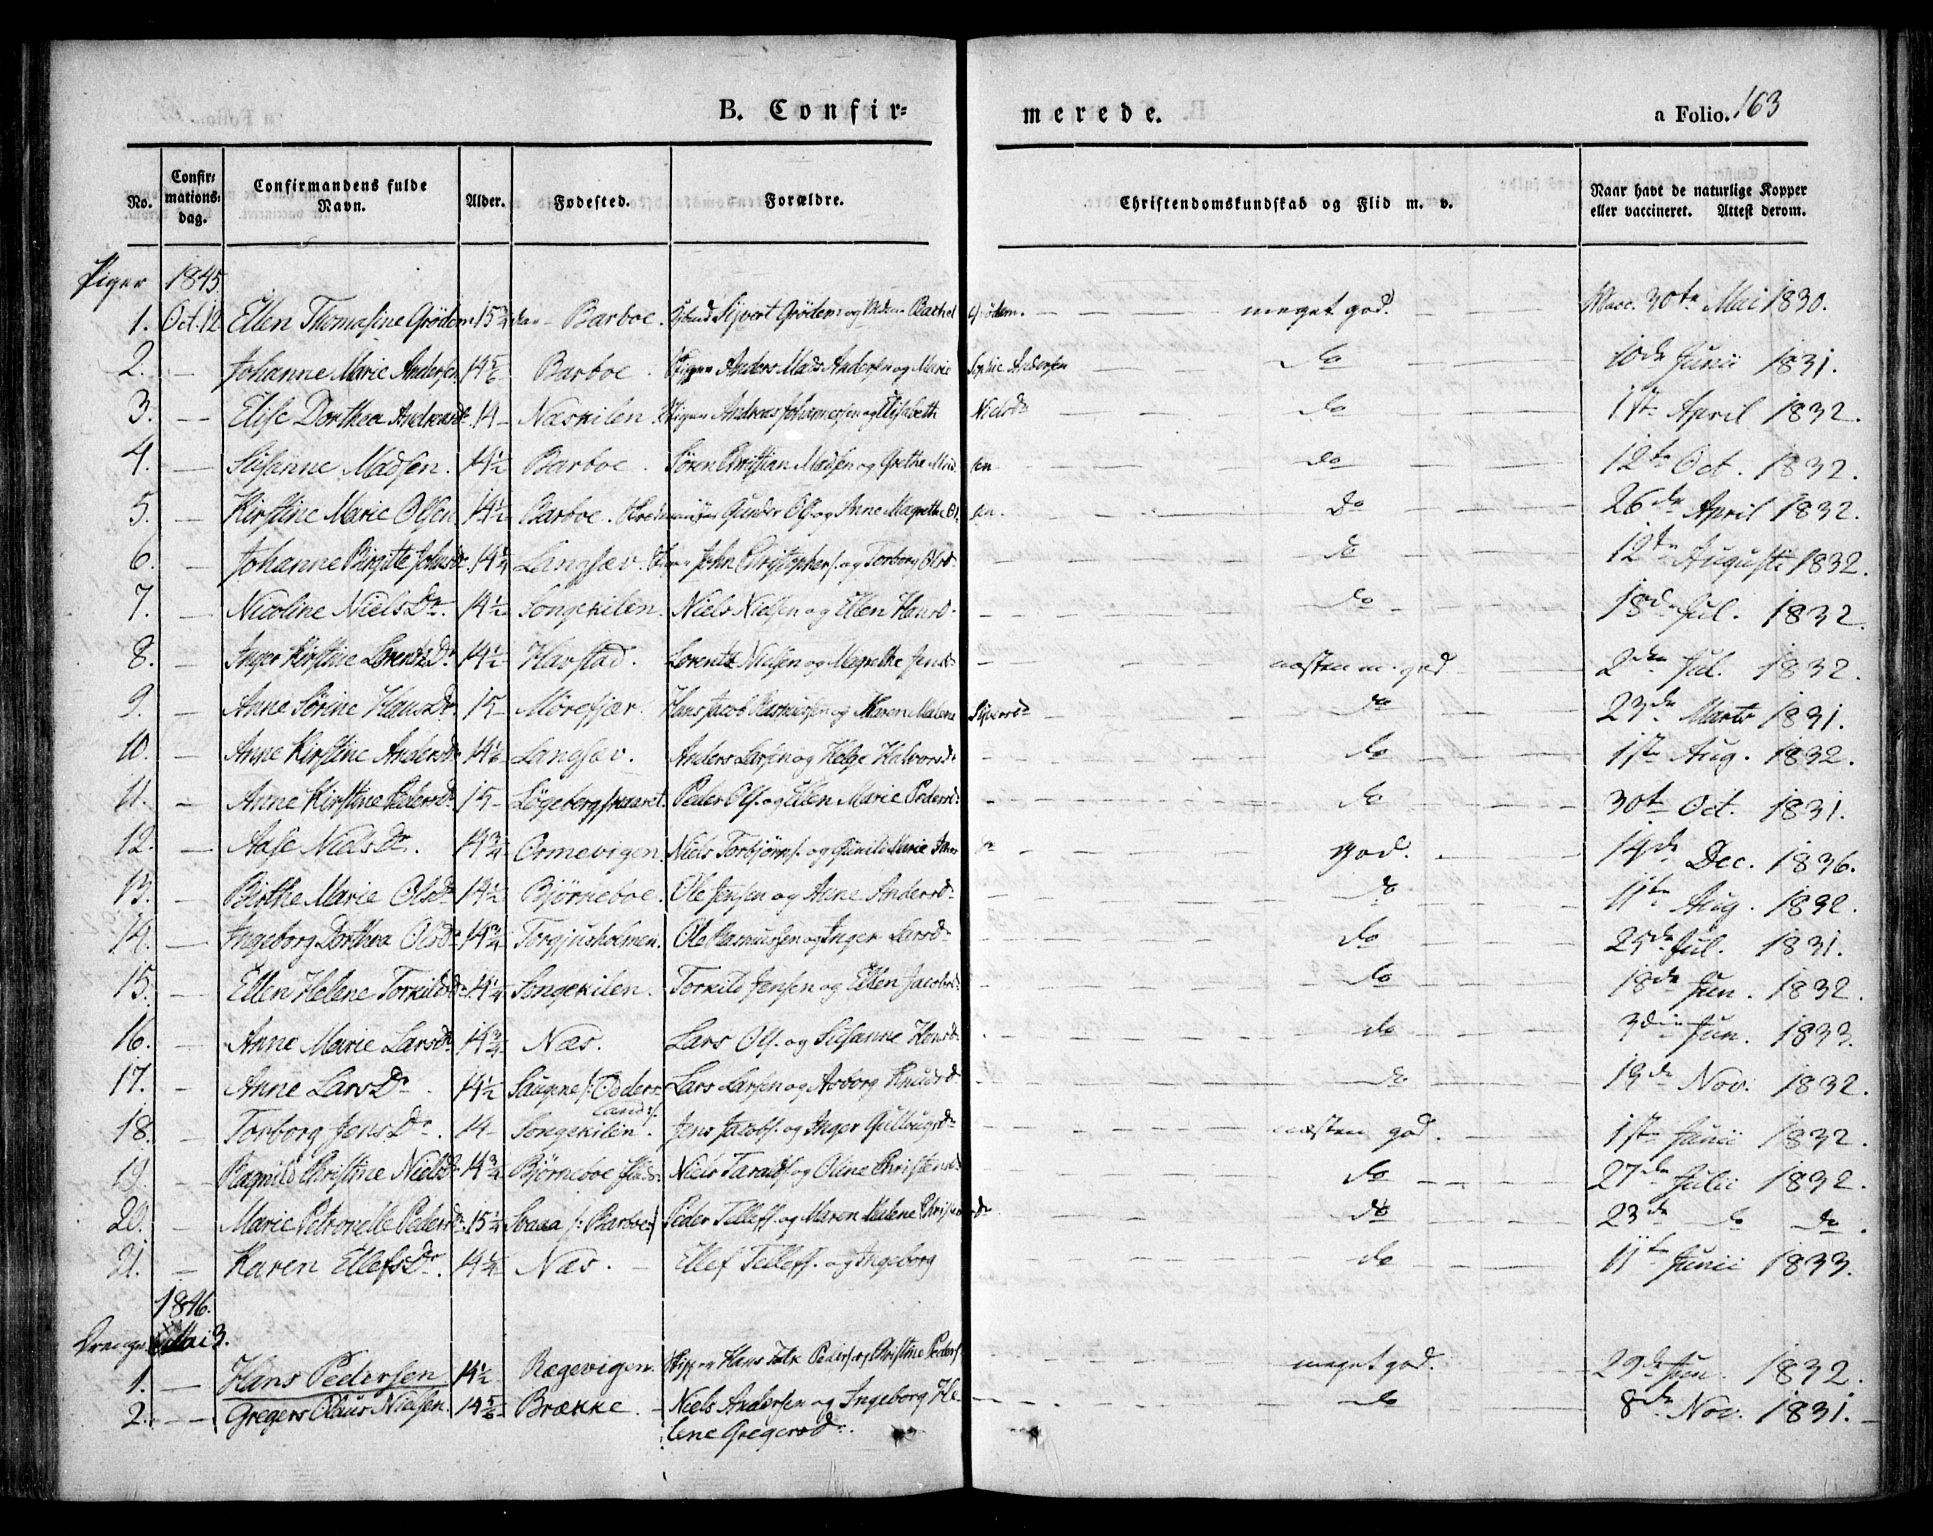 B. Confir=
merede.
a Folio. 163
No.
Confir=mations=dag.
Confirmandens fulde Navn.
Alder.
Fødested.
Forældre.
Christendomskundskab og Flid m. v.
Naar havt de naturlige Kopper eller vaccineret. Attest derom.
Piger 1845
1. Oct. 12 Ellen Thomasine Grödem 15 3/4 Barboe. Sijvert Grödem og Grödem. meget god. Vacc. 30te Mai 1830.
2. — Johanne Marie Andersen 14 5/6 Barboe. Anders Mads Andersen og Marie Sophie Andersen do 10de Junii 1831.
3. — Elise Dorthea Andreasdr 14 Næskilen. Andreas Johannesen og Elisabeth Nielsdr do 1ste April 1832.
4. — Susanne Madsen. 14 1/2 Barboe. Søren Christian Madsen og Grethe Madsen do 12te Oct. 1832.
5. — Kirstine Marie Olsen 14 1/2 Barboe. Gunder Ols. og Anne Magrethe Olsen. Do 26de April 1832.
6. — Johanne Birgitte Johnsdr 14 1/4 Langsæv. John Christophers. og Torborg Olsd. do 12te Augusti 1832.
7. — Nicoline Niels Dr. 14 1/2 Songekilen. Niels Nielsen og Ellen Hansd. do 18de Jul. 1832.
8. — Inger Kirstine Lorents Dr 14 1/2 Havstad. Lorents Nielsen og Magrethe Jensd. næsten m. god 2den Jul. 1832.
9. — Anne Sørine Hans Dr. 15 Mørefjær. Hans Jacob Rasmussen og Maren Malene Sijversdr do 23de Marts 1831.
10. — Anne Kirstine Andersdr 14 1/6 Langsæv. Anders Larsen og Helge Halvorsd. do 1ste Aug. 1832.
11. — Anne Kirstine Pedersdr 15 Løgeberg Peder Ols. og Ellen Marie Pedersd. do 30te Oct. 1831.
12. — Aase Niels Dr. 14 3/4 Ormevigen. Niels Torbjørns. og Gunild Marie god. 14de Dec. 1836.
13. — Birthe Marie Olsdr 14 1/2 Bjørneboe. Ole Jensen og Anne Andersd. do 11te Aug. 1832.
14. — Ingeborg Dorthea Olsdr 14 3/4 Torgjusholmen. Ole Rasmussen og Inger Larsd. do 25de Jul. 1831.
15. — Ellen Helene Torkildsdr 14 1/4 Songekilen. Torkild Jensen og Ellen Jacobsd. do 18de Jun. 1832.
16. — Anne Marie Larsdr 14 3/4 Næs. Lars Ols. og Susanne Hansd. do 3die Jun. 1833.
17. — Anne Lars Dr. 14 1/2 Saugene /: Peders Land :/ Lars Larsen og Asborg Knudsd do 19de Nov. 1832.
18. — Torborg Jens Dr. 14 Songekilen. Jens Jacobs. og Inger Gullougsdr næsten god. 1ste Junii 1832.
19. — Ragnild Christine Nielsdr 14 3/4 Bjørneboe Niels Taralds. og Oline Christensd. do 27de Julii 1832.
20. — Marie Petronelle Pedersdr 15 1/4 /: Barboe :/ Peder Tellefs. og Maren Malene Christensdr do 23de do do.
21. — Karen Ellefs Dr. 14 1/4 Næs. Ellef Tellefs. og Ingeborg do 11te Junii 1833.
1846.
Drenge Mai 3.
1. — Hans Pedersen 14 1/2 Rægevigen. Skipper Hans Falk Peders. og Christine Peders. meget god. 29de Jun. 1832.
2. — Gregers Olaus Nielsen. 14 5/6 Brække. Niels Andersen og Ingeborg He do 8de Nov. 1831.
lene Gregersdr.